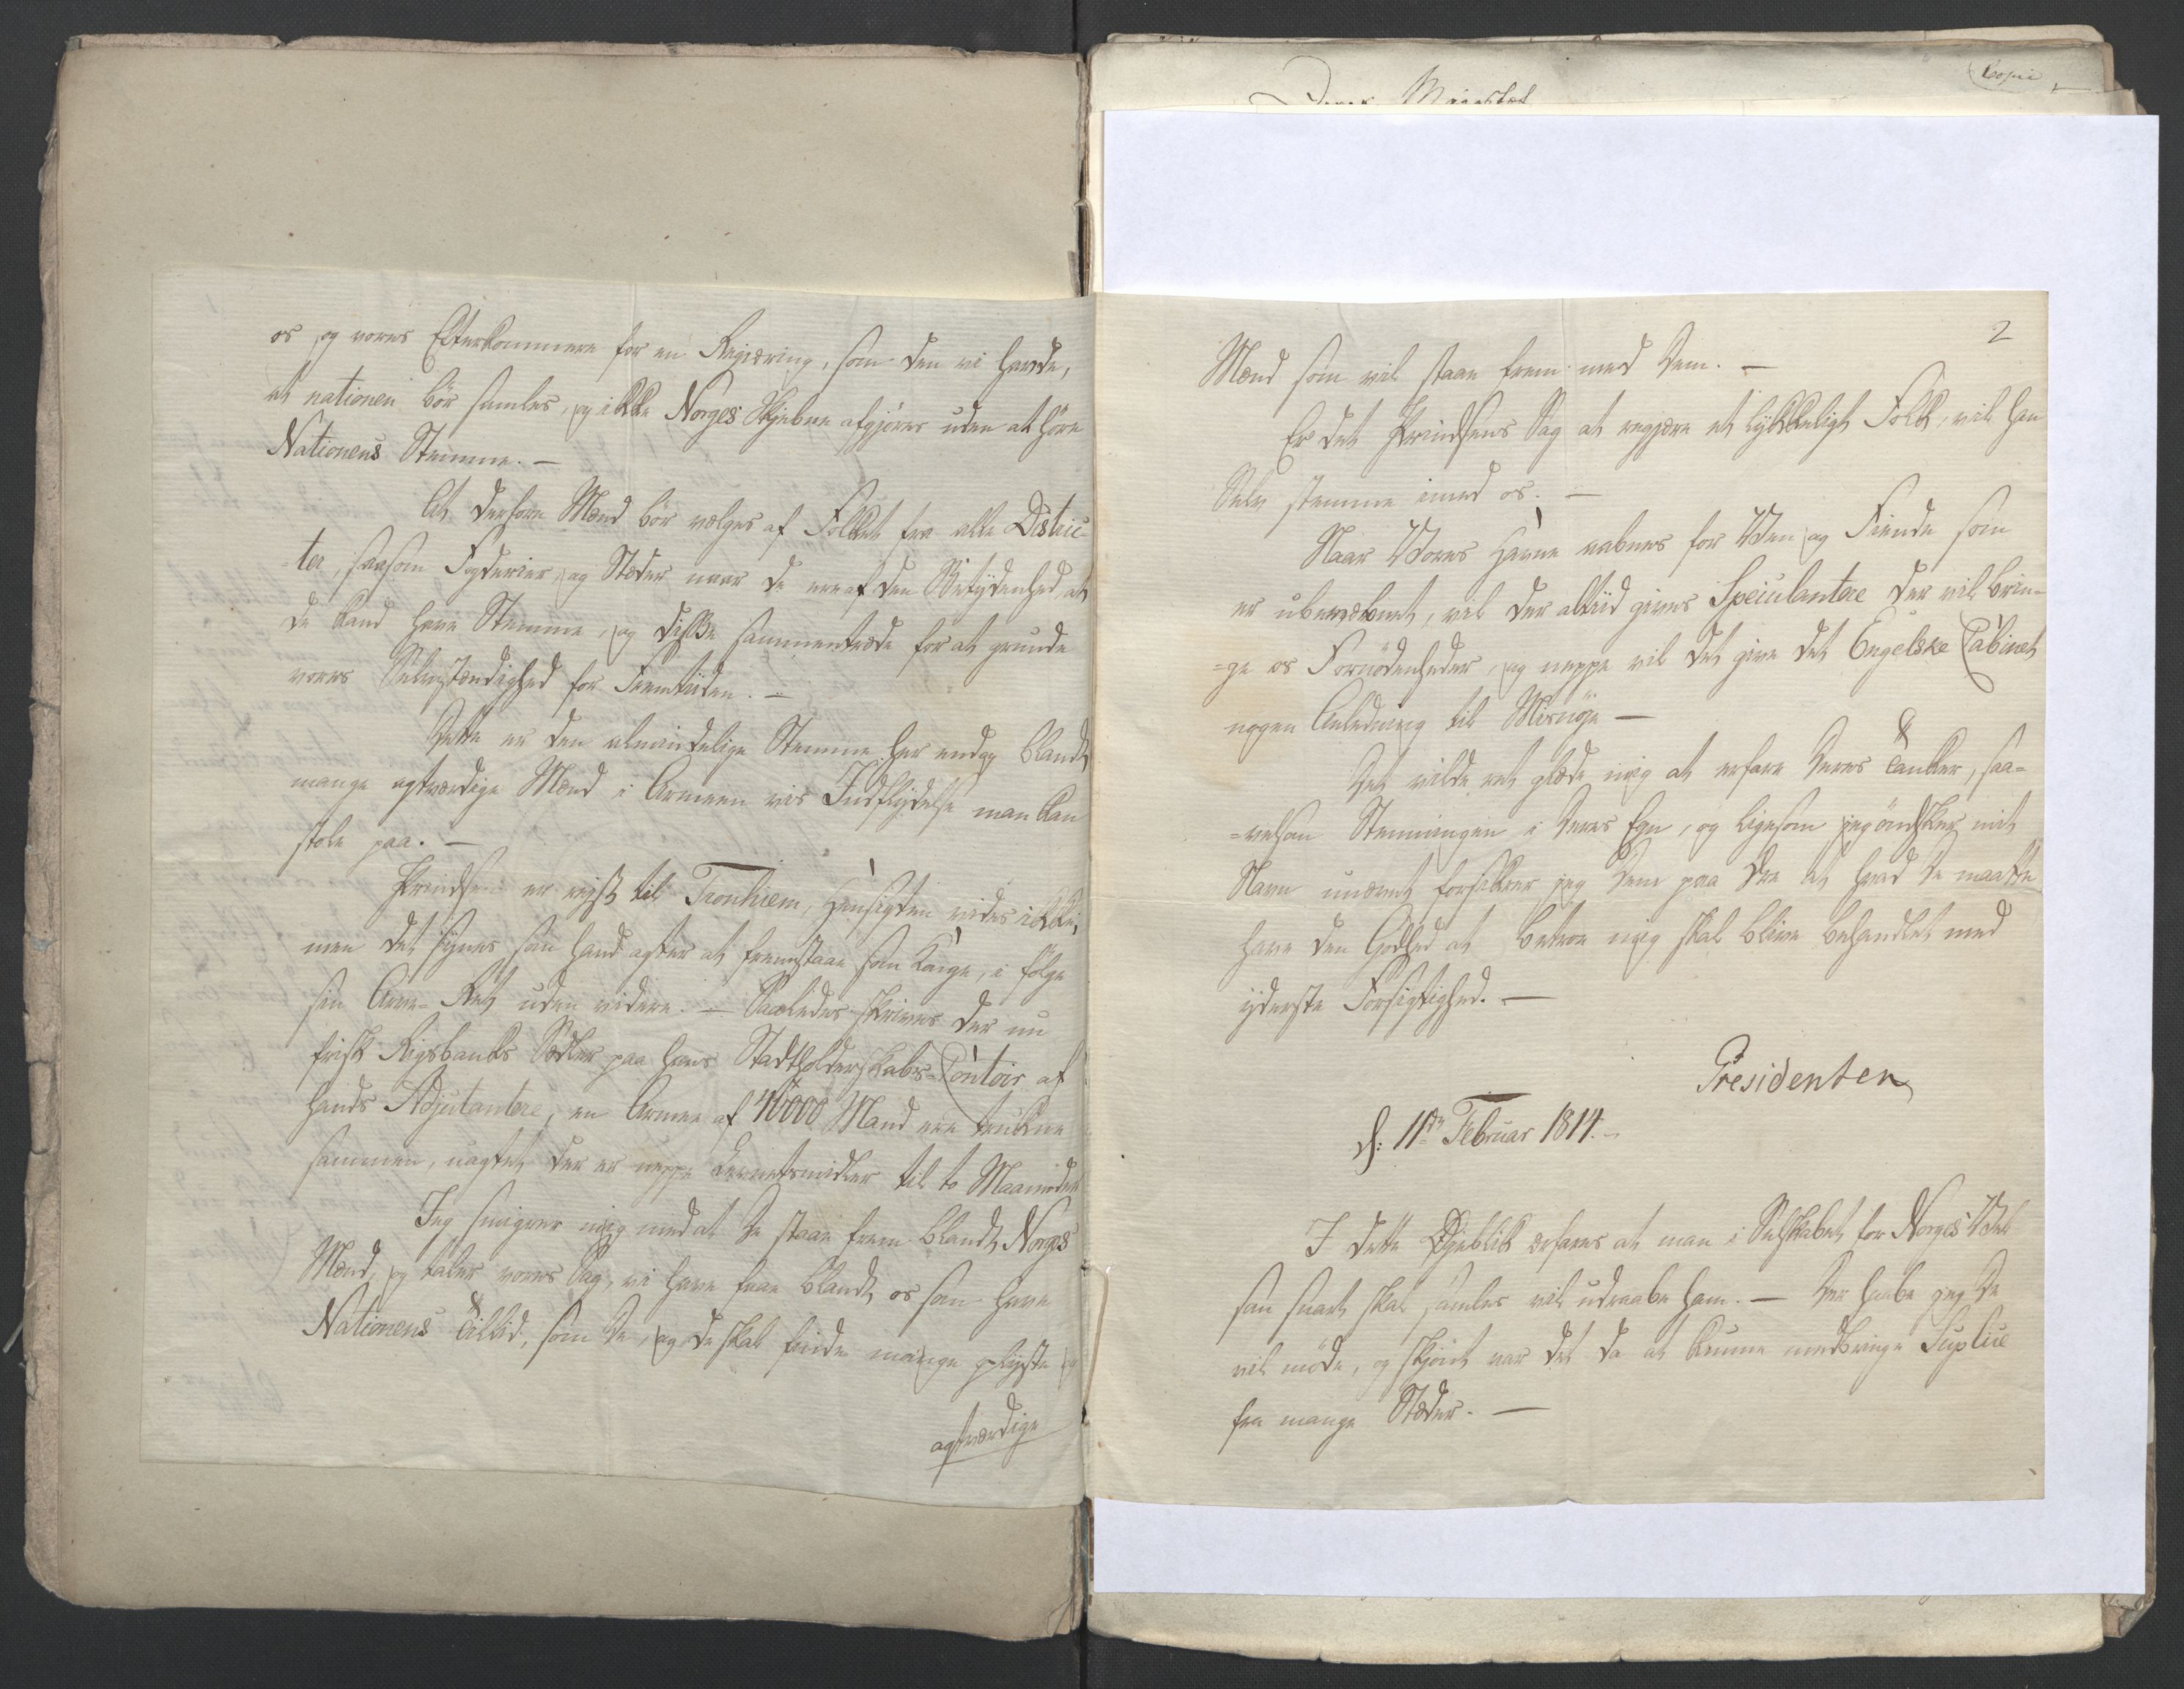 os og vores Efterkommere for en Regiæring, som den vi havde,
at nationen bör samles, og ikke Norges Skjebne afgjöres uden at höre
Nationens Stemme. —
At derfore Mænd bör vælges af Folket fra alle Distric-
=ter, saasom Fogderier, og Stæder naar de ere af den Betydenhed, at
de kand have Stemme, og diße sammentræde for at grunde
vores Selvstændighed for Fremtiden. —
Dette er den almindelige Stemme her endog blandt
mange agtværdige Mænd i Armeen vis Indflydelse man kan
stole paa. —
Prindsen er reist til Tronhiem, Hensigten vides ikke,
men det synes som hand agter at fremstaae som Konge, i fölge
sin Arve-Ret uden videre. — Saaledes skrives der nu
friskt Rigsbanks Sedler paa hans Stadtholderskabs-Contoir af
hands Adjutantere, en Armee af 40000 Mand ere trukne
sammen, uagtet der er neppe Levnetsmidler til to Maaneder
Jeg smigrer mig med at De staae frem blandt Norges
Mænd, og taler vores Sag, vi have faae blandt os som have
Nationens Tillid, som De, og De skal finde mange oplyste og
agtværdige
Copie
2
Mænd som vil staae frem med Dem. —
Er det Prindsens Sag at regjere et lykkeligt Folk, vil han
Selv stemme imed os. —
Naar Vores Havne aabnes for Ven og Fiende som
er ubevæbnet, vil der altiid gives Speculantere der vil brin-
=ge os Fornödenheder, og neppe vil det give det Engelske Cabinet
nogen Anledning til Misnöje —
Det vilde ret glæde mig at erfare Deres Tanker, saa=
=velsom Stemningen i Deres Egn, og ligesom jeg öndsker mit
Navn unævnt forsikrer jeg Dem paa Ære at hvad De maatte
have den Godhed at betroe mig skal blive behandlet med
yderste Forsigtighed. —
Presidenten
d: 11te Februar 1814. -
I dette Öjeblik erfares at man i Selskabet for Norges Vel
som snart skal samles vil udraabe ham. — Der haaber jeg De
vil möde, og skjönt var det da at kunne medbringe Suplice
fra mange Stæder. —